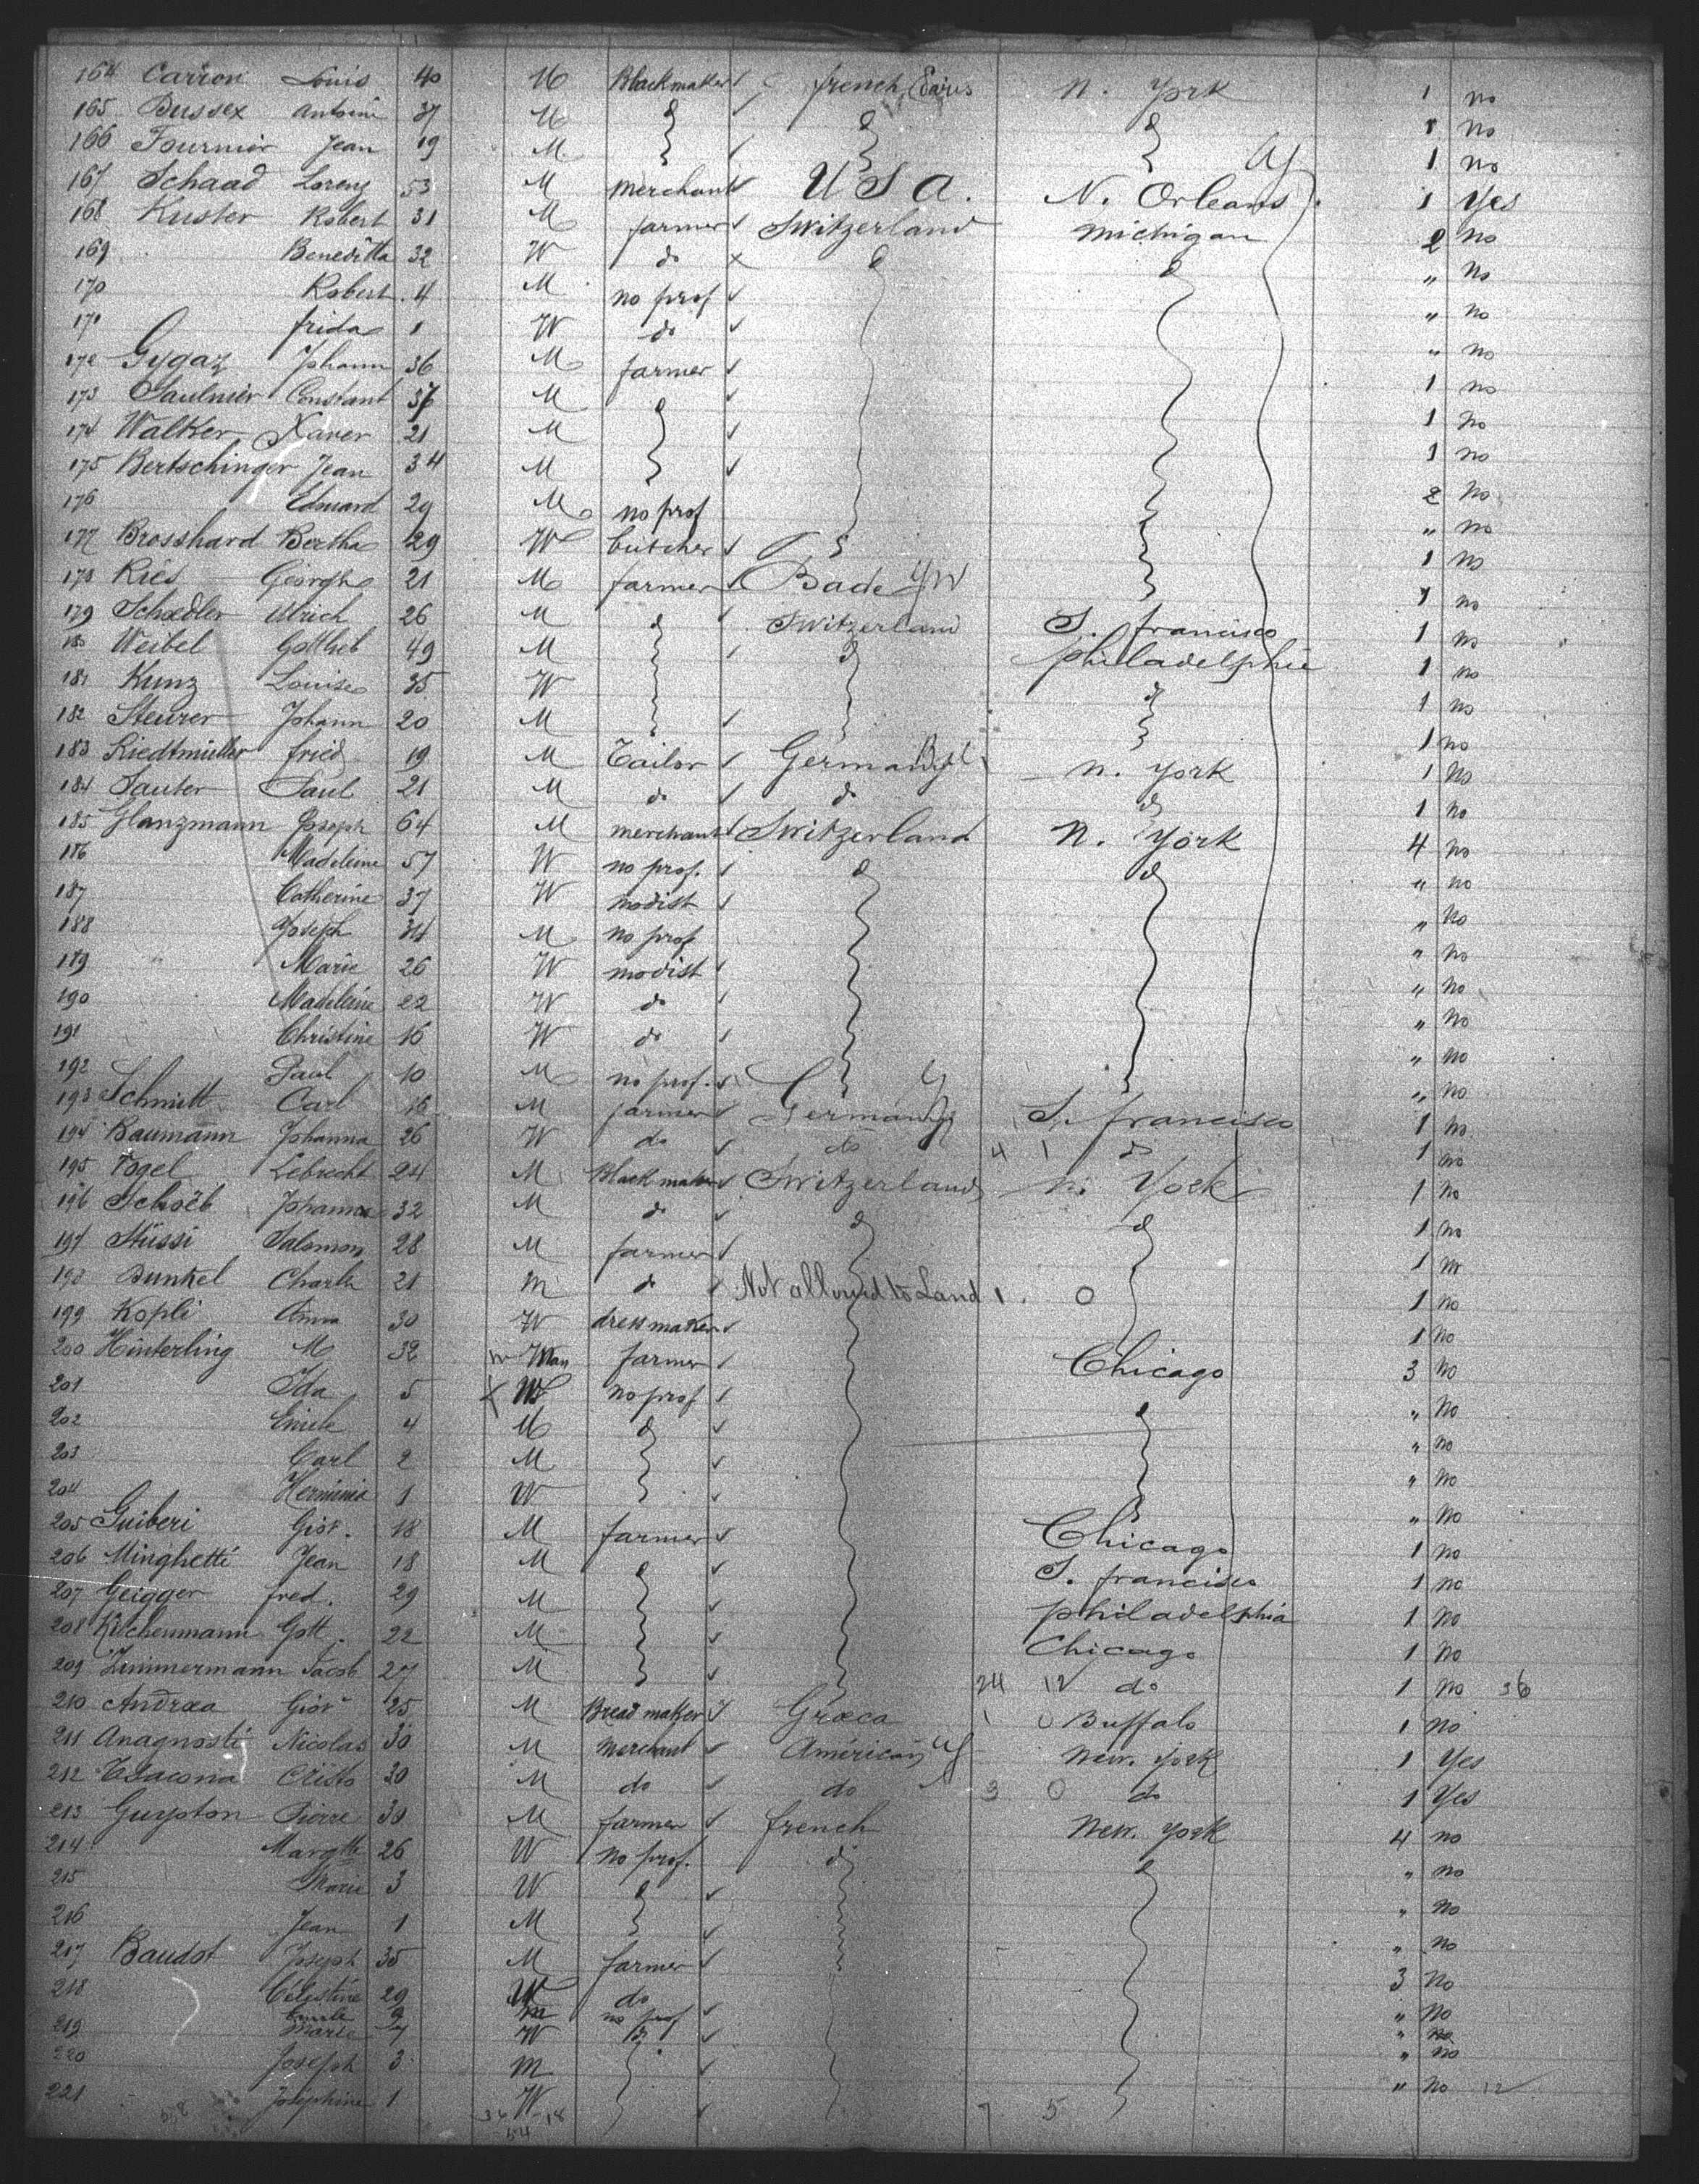 164 Carron Louis 40 M Blackmaker french N. York 1 no
165 Bussex Antoine 37 M 1 no
166 Fournier Jean 19 M 1 no
167 Schaad Lorenz 53 M merchant U S A. N. Orleans 1 Yes
168 Kuster Robert 31 M farmer Switzerland Michigan 2 no
169 Beneditta 32 W do " no
170 Robert 4 M no prof " no
171 frida 1 W do " no
172 Gygaz Johann 36 M farmer 1 no
173 Saulnier Constant 37 M 1 no
174 Walker Xaver 21 M 1 no
175 Bertschinger Jean 34 M 2 no
176 Edmard 29 M no prof " no
177 Brosshard Bertha 29 W butcher 1 no
178 Ries George 21 M farmer Bade 1 no
179 Schædler Ulrich 26 M Switzerland S. francisco 1 no
180 Weibel Gottlieb 49 M philadelphie 1 no
181 Kunz Louise 35 W 1 no
182 Steurer Johann 20 M 1 no
183 Riedtmüller fried 19 M Tailor Germany N. york 1 no
184 Sauter Paul 21 M do do do 1 no
185 Glanzmann Joseph 64 M merchant Switzerland N. York 4 no
186 Madeleine 57 W no prof. " no
187 Catherine 37 W modist " no
188 Joseph 34 M no prof " no
189 Marie 26 W modist " no
190 Madeleine 22 W do " no
191 Christine 16 W do " no
192 Paul 10 M no prof. " no
193 Schmitt Carl 16 M farmer Germany S. francisco 1 no
194 Baumann Johanna 26 W do do 4 1 do 1 no
195 Vogel Lebrecht 24 M Blackmaker Switzerland N. York 1 no
196 Schoëb Johannes 32 M do 1 no
197 Stüssi Salomon 28 M farmer 1 no
198 Bunkel Charle 21 m do Not allowed to Land 1. 0 1 no
199 Kopli Anna 30 W dressmaker 1 no
200 Hinterling M 32 Man farmer Chicago 3 no
201 Ida 5 X W no prof " no
202 Emile 4 M " no
203 Carl 2 M " no
204 Herminia 1 W " no
205 Guiberi Giov. 18 M farmer Chicago 1 no
206 Minghetti Jean 18 M S. francisco 1 no
207 Geigger fred. 29 M philadelphia 1 no
208 Kirchenmann Gott. 22 M Chicago 1 no
209 Zimmermann Jacob 27 M 24 12 do 1 no 36
210 Andrœa Giov 25 M Bread maker Græca 1 0 Buffalo 1 no
211 Anagnosti Nicolas 30 M Merchant Américain New. York 1 Yes
212 Cristo 30 M do do 3 0 do 1 Yes
213 Guyoton Pierre 30 M farmer french New. York 4 no
214 Margtte 26 W no prof. " no
215 Marie 3 W " no
216 Jean 1 M " no
217 Baudot Joseph 35 M farmer 3 no
218 Célestine 29 W do " no
Emile 9 m no prof " no
219 Marie 7 W " no
220 Joseph 3 m
221 Joséphine 1 W " no 12
558 36 18 7 5
54